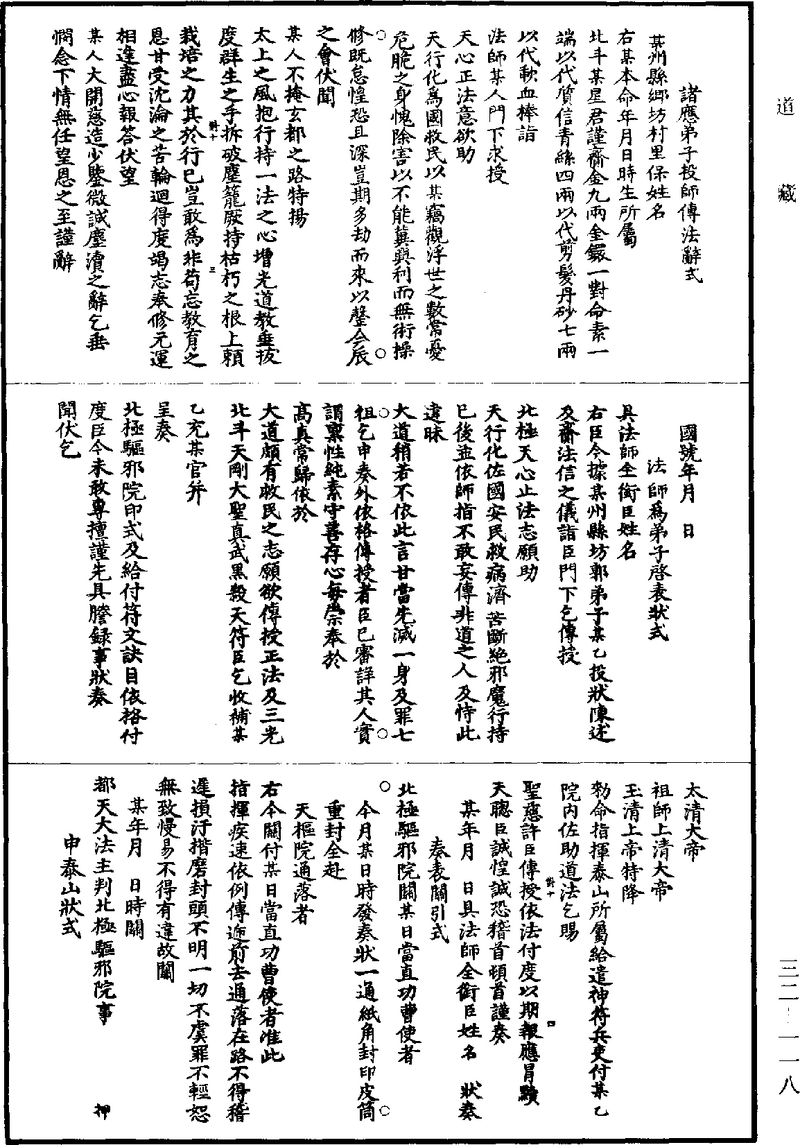 道藏
諸應弟子投師傳法辭式
某州縣鄉坊村里保姓名
右某本命年月日時生所屬
北斗某星君謹齎金九兩金鐶一對命素一
端以代質信青絲四兩以代剪髮丹砂七兩
以代歃血捧詣
法師某人門下求授
天心正法意欲助
天行化為國救民以某竊觀浮世之數常憂
危脆之身愧除害以不能冀興利而無術操
修既怠惶恐且深豈期多劫而來以罄今辰
之會伏聞
某人不掩玄都之路特揚
太上之風抱行持一法之心增光道教垂拔
度群生之手拆破塵籠厥持枯朽之根上賴
對十
栽培之力其於行巳豈敢為非苟忘教育之
三
恩甘受沈淪之苦輪迴得度竭志奉修元運
相逢盡心報答伏望
某人大開慈造少鑒微誠塵瀆之辭乞垂
憫念下情無任望恩之至謹辭
國號年月 日
法師為弟子啓表狀式
具法師全銜臣姓名
右臣今據某州縣坊郭弟子某乙投狀陳述
及齎法信之儀詣臣門下乞傳授
北極天心正法志願助
天行化佐國安民救病濟苦斷絕邪魔行持
已後並依師指不敢妄傳非道之人及恃此
違昧
大道稍若不依此言甘當先滅一身及罪七
祖乞申奏外依格傳授者臣已審詳其人實
謂稟性純素守善存心每崇奉於
高真常歸依於
大道頗有救民之志願欲傳授正法及三光
北斗天剛大聖真武黑殺天符臣乞收補某
乙充某官并
呈奏
北極驅邪院印式及給付符文訣目依格付
度臣今未敢專擅謹先具謄錄事狀奏
聞伏乞
太清大帝
祖師上清大帝
玉清上帝特降
勑命指揮泰山所屬給遣神符兵吏付某乙
院內佐助道法乞賜
對十
聖慈許臣傳授依法付度以期報應冒黷
四
天聰臣誠惶誠恐稽首頓首謹奏
某年月 日具法師全銜臣姓名 狀奏
奏表關引式
北極驅邪院關某日當直功曹使者
今月某日時發奏狀一通紙角封印皮筒
重封全赴
天樞院通落者
右今關付某日當直功曹使者准此
指揮疾速依例傳遞前去通落在路不得稽
遲損汙揩磨封頭不明一切不虞罪不輕恕
無致慢易不得有違故關
某年月 日時關
都天大法主判北極驅邪院事 押
申泰山狀式
三二-一一八